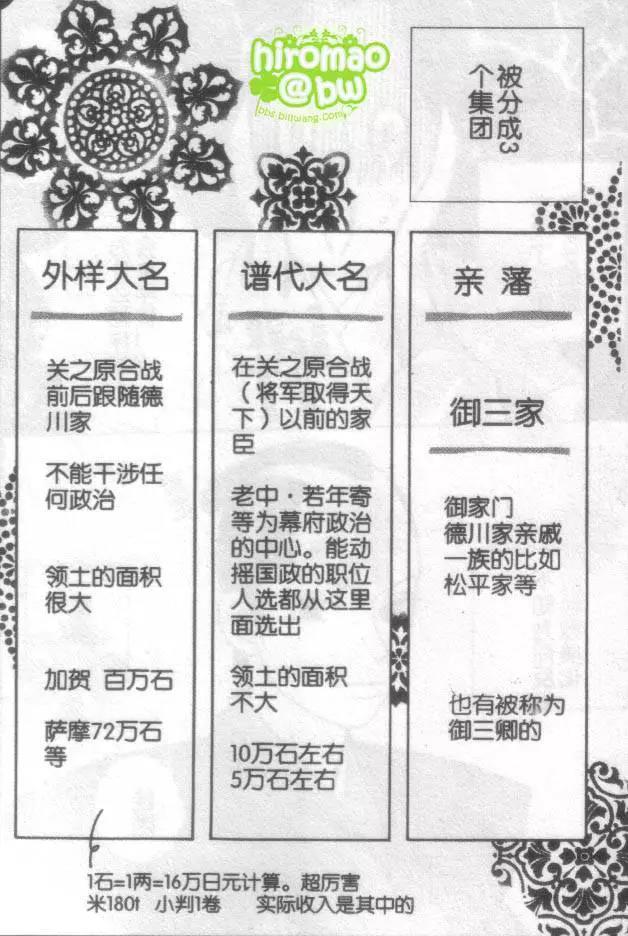 hiromao
@bw
bbs.billwang.com
被分成3
个集团
亲 藩
御三家
御家门
德川家亲戚
一族的比如
松平家等
也有被称为
御三卿的
谱代大名
在关之原合战
（将军取得天
下）以前的家
臣
老中·若年寄
等为幕府政治
的中心。能动
摇国政的职位
人选都从这里
面选出
领土的面积
不大
10万石左右
5万石左右
外样大名
关之原合战
前后跟随德
川家
不能干涉任
何政治
领土的面积
很大
加贺 百万石
萨摩72万石
等
1石=1两=16万日元计算。超厉害
米180t 小判1卷 实际收入是其中的